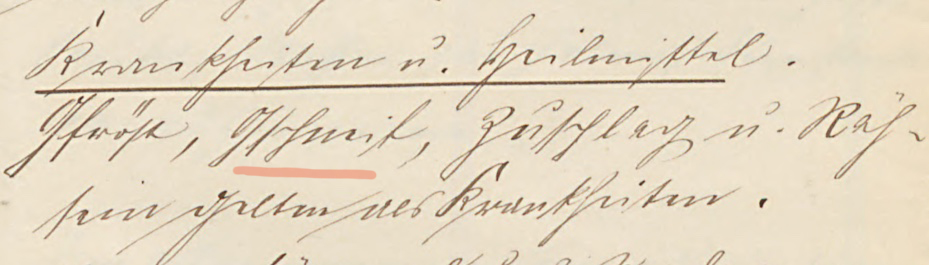 Krankheiten u. Heilmittel.
Gfröst, Gschneit, Zuschlag u. Räh-
sein gelten als Krankheiten.